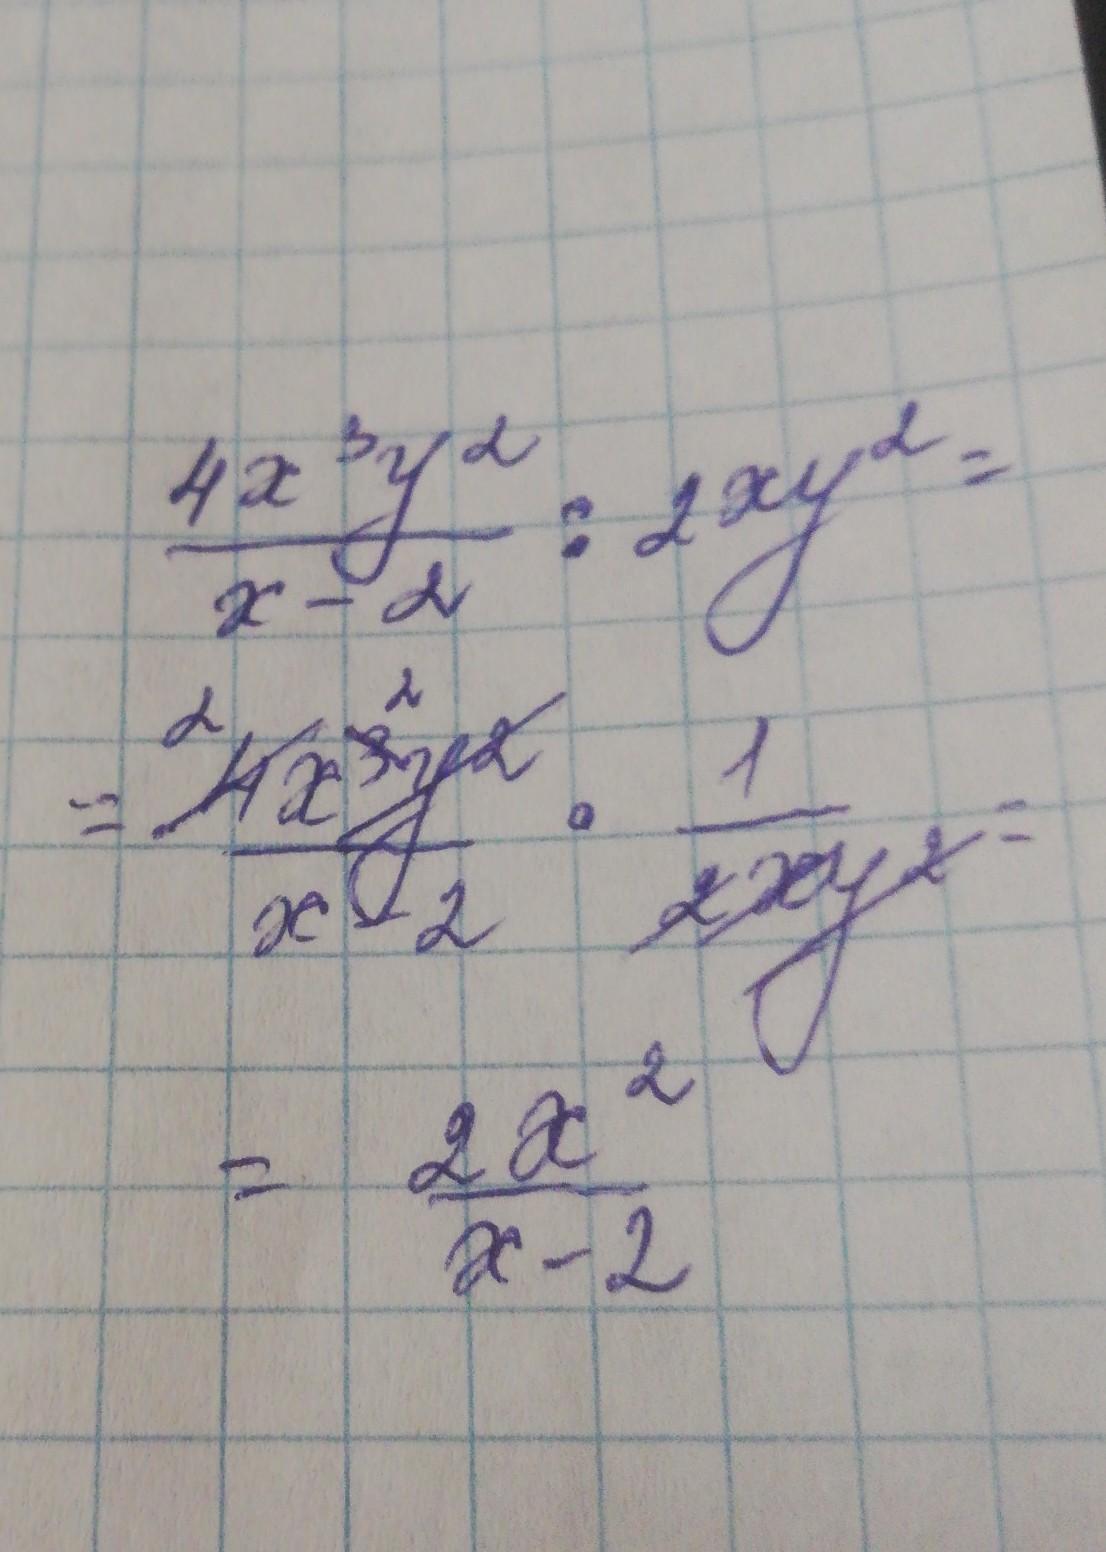 4x³y²/(x-2) : 2xy² =
= ²4x³²y²/(x-2) · 1/(2xy²) =
= 2x²/(x-2)